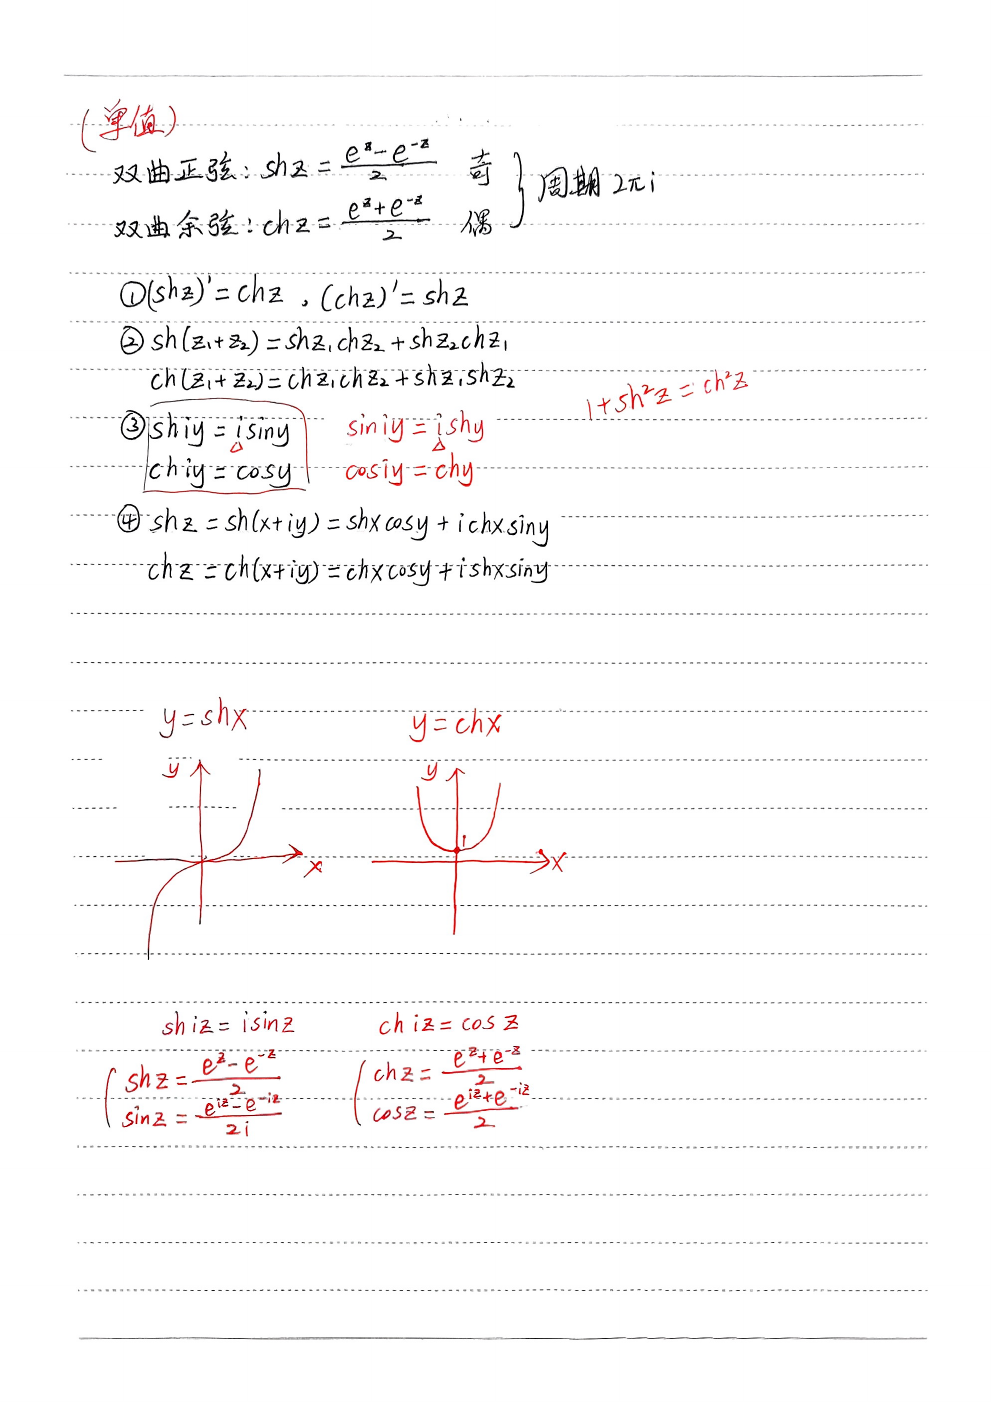 (单值)
双曲正弦: shz = (e^z - e^-z)/2 奇
双曲余弦: chz = (e^z + e^-z)/2 偶 } 周期 2πi
①(shz)' = chz , (chz)' = shz
② sh(z₁+z₂) = shz₁chz₂ + shz₂chz₁
ch(z₁+z₂) = chz₁chz₂ + shz₁shz₂
1+sh²z = ch²z
③ shiy = isiny siniy = ishy
chiy = cosy cosiy = chy
④ shz = sh(x+iy) = shxcosy + ichxsiny
chz = ch(x+iy) = chxcosy + ishxsiny
y=shx y=chx
y y
1
x x
shiz = isinz chiz = cosz
shz = (e^z - e^-z)/2 chz = (e^z + e^-z)/2
sinz = (e^iz - e^-iz)/2i cosz = (e^iz + e^-iz)/2